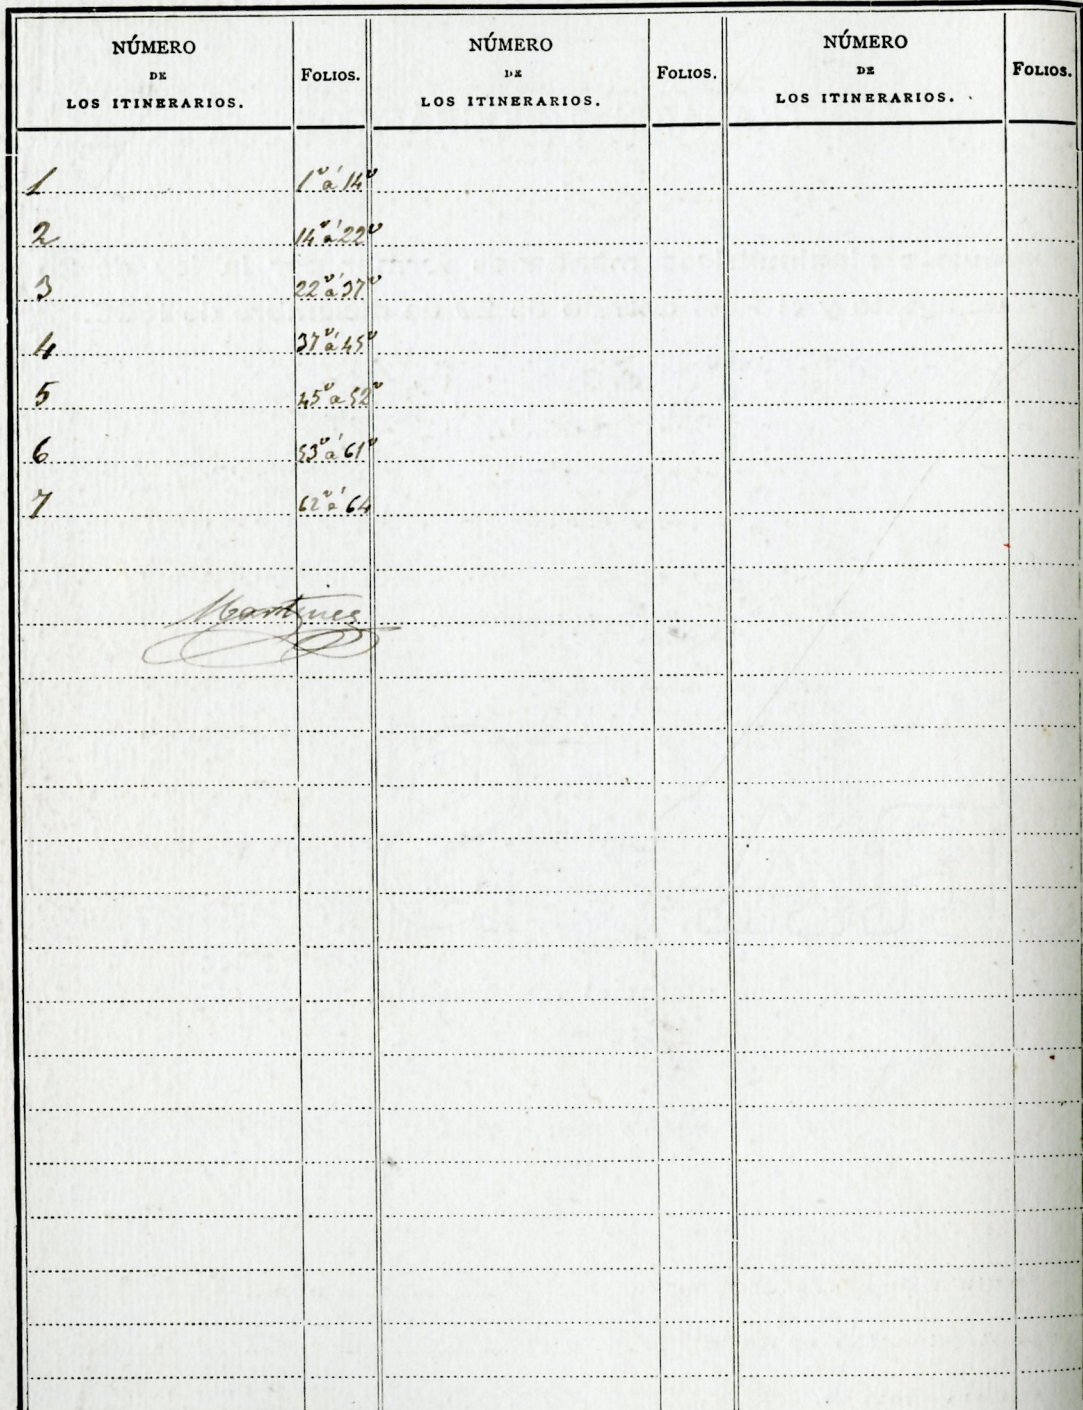 NÚMERO DE LOS ITINERARIOS. FOLIOS. NÚMERO DE LOS ITINERARIOS. FOLIOS. NÚMERO DE LOS ITINERARIOS. FOLIOS.
1 1ᵛ á 14ᵛ
2 14ᵛ á 22ᵛ
3 22ᵛ á 37ᵛ
4 37ᵛ á 45ᵛ
5 45ᵛ a 52ᵛ
6 53ᵛ á 61ᵛ
7 62ᵛ á 64
Martinez